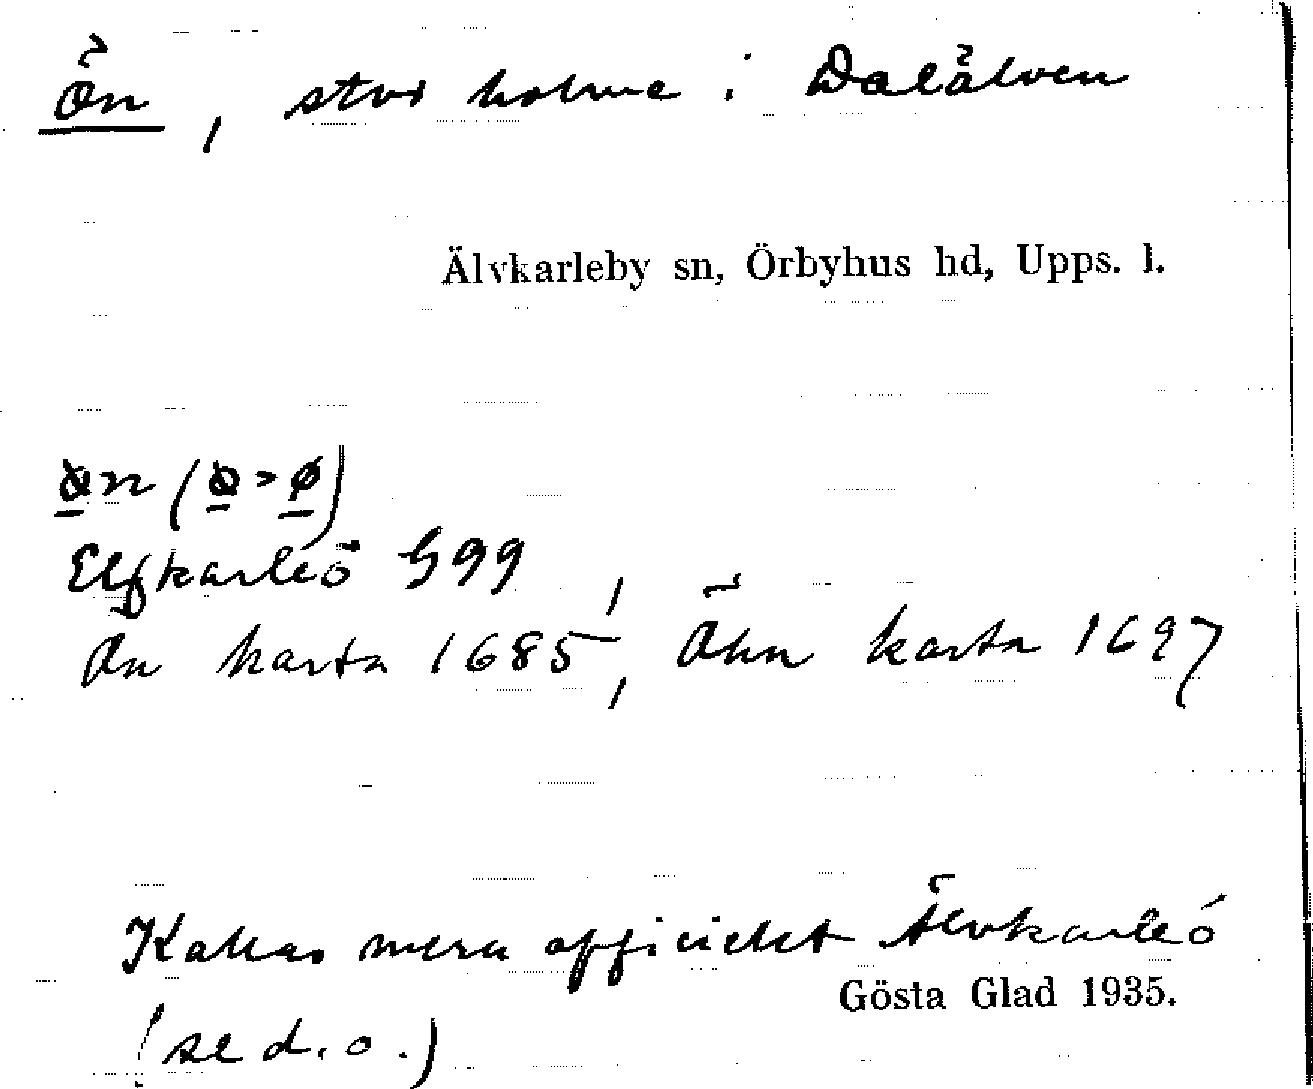 Ön, stor holme i Dalälven
Älvkarleby sn, Örbyhus hd, Upps. l.
Elfkarleö G99
Ön karta 1685, Öhn karta 1697
Kallas mera officiellt Älvkarleö
Gösta Glad 1935.
(se d. o.)